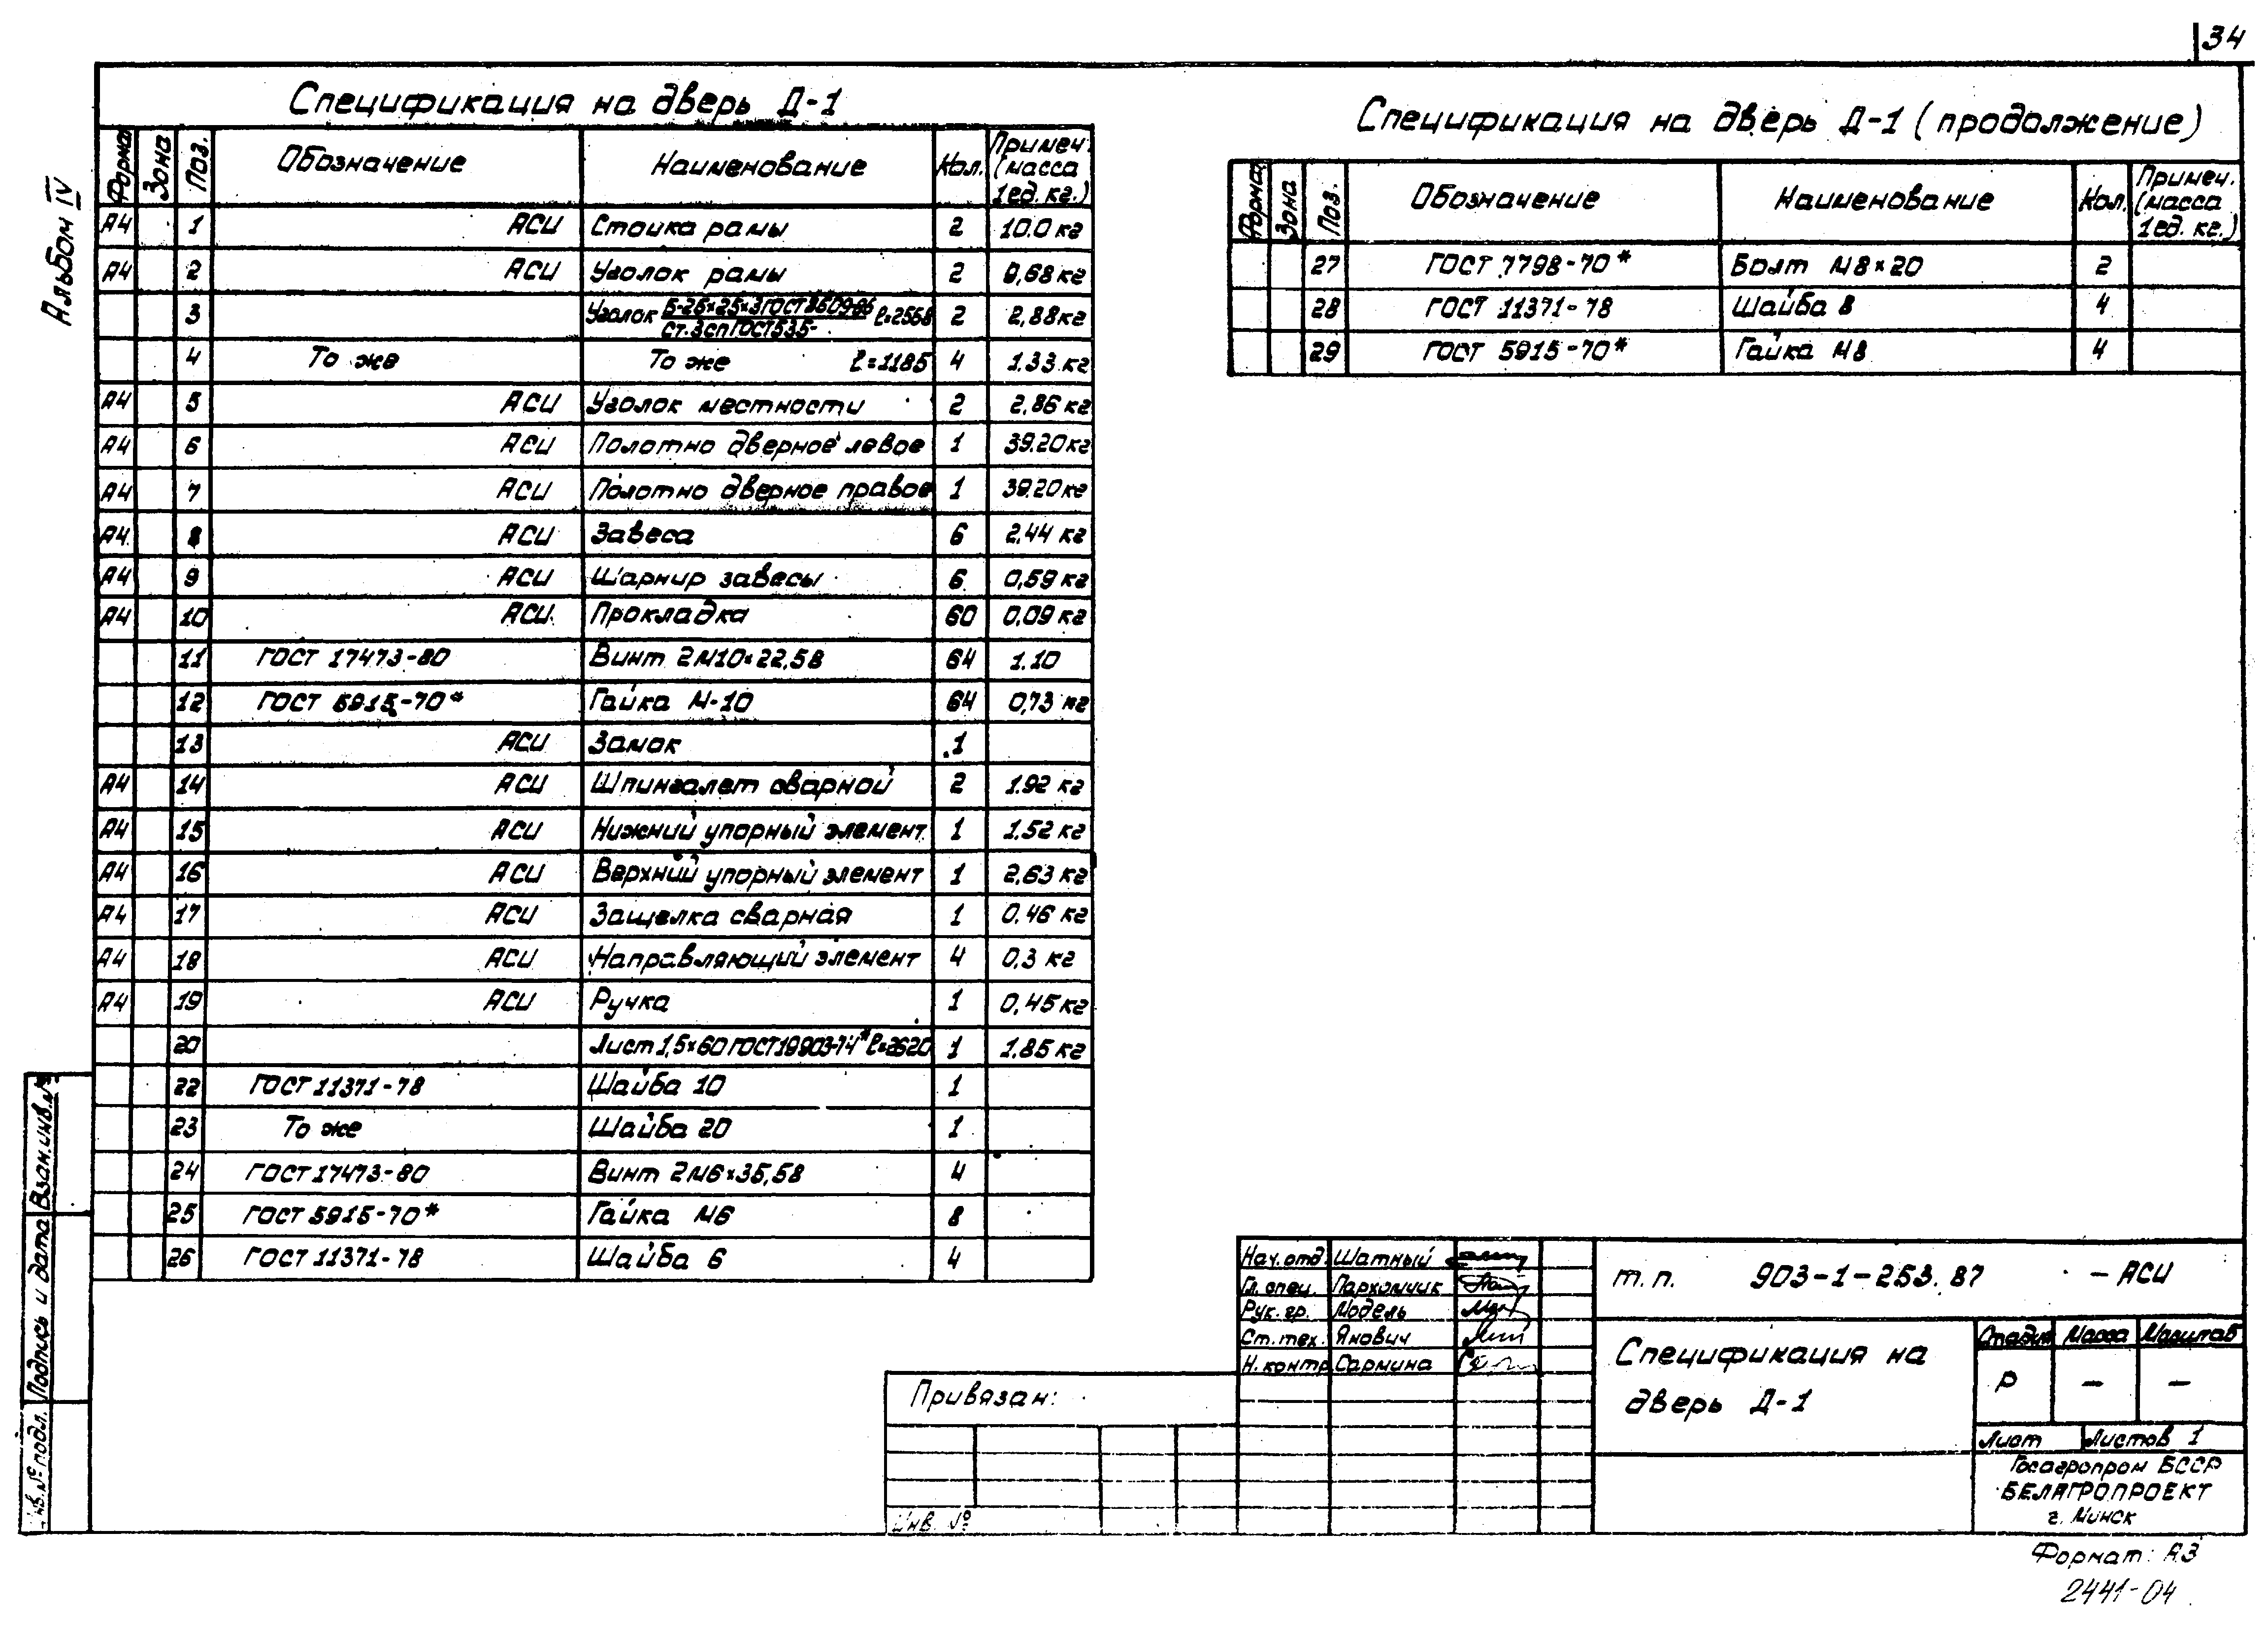 34
Альбом IV
Спецификация на дверь Д-1
Форма Зона Поз. Обозначение Наименование Кол. Примеч. (масса 1ед. кг.)
А4 1 АСИ Стойка рамы 2 10.0 кг
А4 2 АСИ Уголок рамы 2 0,68 кг
3 Уголок Б-25×25×3 ГОСТ 8509-86 / Ст.3сп ГОСТ 535- ℓ=2558 2 2,88 кг
4 То же То же ℓ=1185 4 1.33 кг
А4 5 АСИ Уголок местности 2 2,86 кг
А4 6 АСИ Полотно дверное левое 1 39.20 кг
А4 7 АСИ Полотно дверное правое 1 39.20 кг
А4 8 АСИ Завеса 6 2,44 кг
А4 9 АСИ Шарнир завесы 6 0,59 кг
А4 10 АСИ Прокладка 60 0,09 кг
11 ГОСТ 17473-80 Винт 2М10×22.58 64 1.10
12 ГОСТ 5915-70* Гайка М-10 64 0,73 кг
13 АСИ Замок 1
А4 14 АСИ Шпингалет сварной 2 1.92 кг
А4 15 АСИ Нижний упорный элемент 1 1.52 кг
А4 16 АСИ Верхний упорный элемент 1 2,63 кг
А4 17 АСИ Защелка сварная 1 0.46 кг
А4 18 АСИ Направляющий элемент 4 0.3 кг
А4 19 АСИ Ручка 1 0,45 кг
20 Лист 1,5×60 ГОСТ 19903-74* ℓ=2620 1 1.85 кг
22 ГОСТ 11371-78 Шайба 10 1
23 То же Шайба 20 1
24 ГОСТ 17473-80 Винт 2М6×35,58 4
25 ГОСТ 5915-70* Гайка М6 8
26 ГОСТ 11371-78 Шайба 6 4
Спецификация на дверь Д-1 (продолжение)
Форма. Зона Поз. Обозначение Наименование Кол. Примеч. (масса 1ед. кг.)
27 ГОСТ 7798-70* Болт М8×20 2
28 ГОСТ 11371-78 Шайба 8 4
29 ГОСТ 5915-70* Гайка М8 4
Взам.инв.№
Подпись и дата
Инв.№ подл.
Привязан:
Инв. №
Нач.отд. Шатный
Гл. спец. Пархомчик
Рук. гр. Модель
Ст. тех. Янович
Н. контр. Сармина
т.п. 903-1-253.87 - АСИ
Спецификация на
дверь Д-1
Стадия Масса Масштаб
Р — —
Лист Листов 1
Госагропром БССР
БЕЛАГРОПРОЕКТ
г. Минск
Формат: А3
2441-04